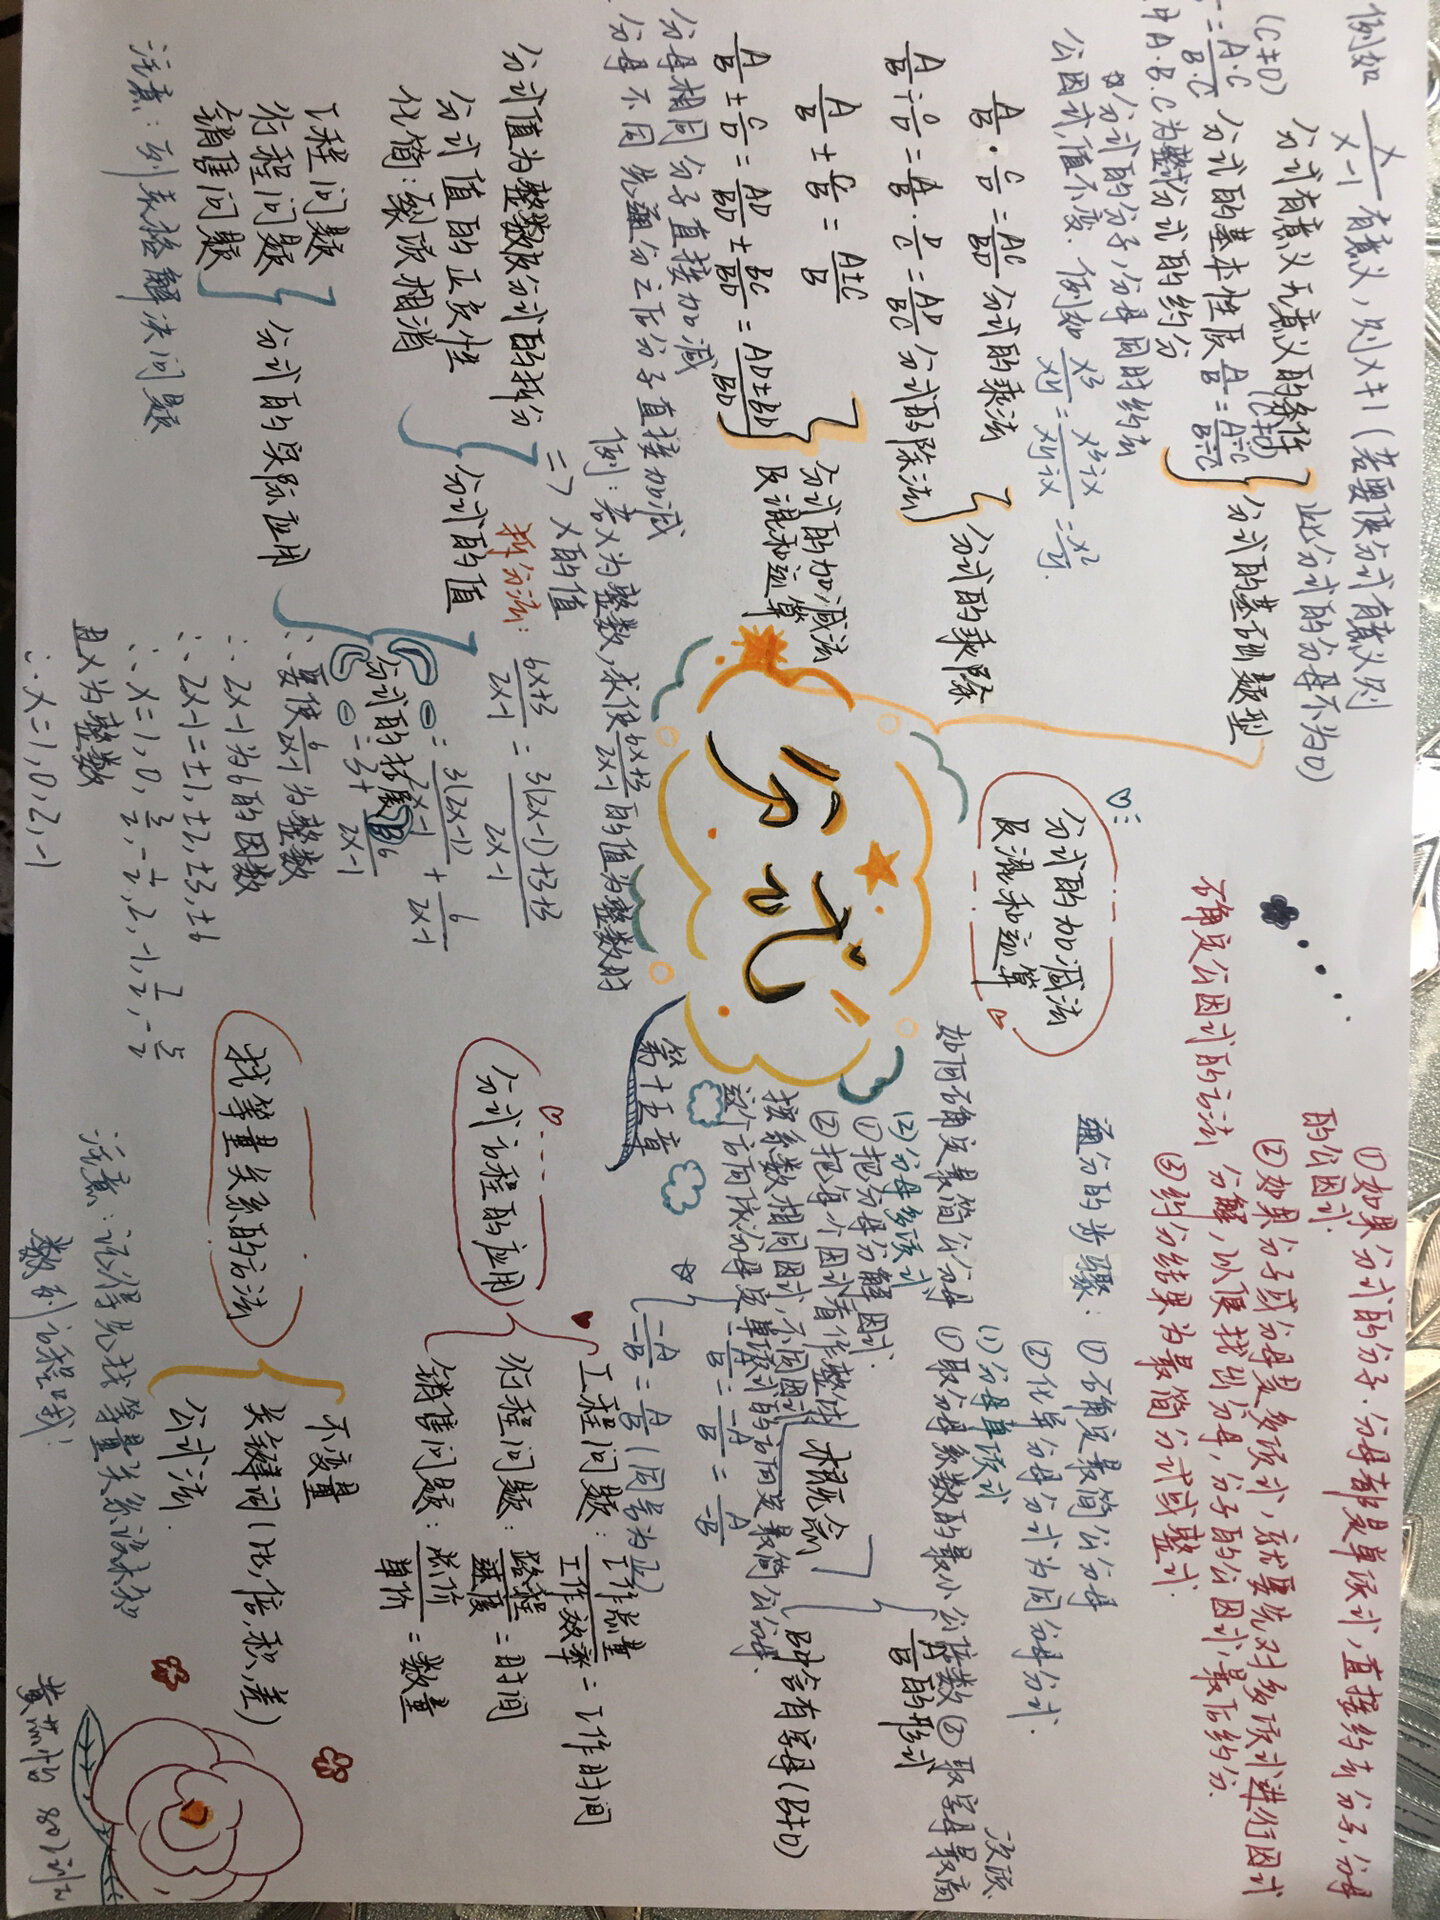 例如 x/x-1 有意义，则x≠1（若要使分式有意义则
此分式的分母不为0）
分式有意义无意义的条件
(C≠0)
分式的基本性质 A/B=A÷C/B÷C (C≠0)
=A·C/B·C
中A.B.C为整式
分式的约分
分式的基础题型
把分式的分子，分母同时约去
公因式，值不变. 例如 x³/xy=x³÷x/xy÷x=x²/y.
A/B·C/D=AC/BD 分式的乘法
A/B÷C/D=A/B·D/C=AD/BC 分式的除法
分式的乘除
A/B±C/B=A±C/B
A/B±C/D=AD/BD±BC/BD=AD±BD/BD
分式的加减法
及混和运算
分母相同 分子直接加减
分母不同 先通分之后分子直接加减
例：若x为整数，求使6x+3/2x-1的值为整数时
=> x的值
分式值为整数及分式的拆分
分式值的正负性
化简：裂项相消
分式的值
拆分法：6x+3/2x-1=3(2x-1)+3+3/2x-1
=3(2x-1)/2x-1+6/2x-1
=3+6/2x-1
∴要使6/2x-1为整数
∴2x-1为6的因数
∴2x-1=±1,±2,±3,±6
∴x=1,0,3/2,-1/2,2,-1,7/2,-5/2
且x为整数
∴x=1,0,2,-1
工程问题
行程问题
销售问题
分式的实际应用
注意：列表格解决问题
分式的拓展
分式
第十五章
分式的加减法
及混和运算
①如果分式的分子.分母都是单项式，直接约去分子，分母
的公因式.
②如果分子或分母是多项式，就要先对多项式进行因式
确定公因式的方法 分解，以便找出分母，分子的公因式，最后约分.
③约分结果为最简分式或整式.
通分的步骤：①确定最简公分母
②化异分母分式为同分母分式.
(1)分母单项式
如何确定最简公分母 ①取分母系数的最小公倍数②取字母最高
次项
(2)分母多项式
①把分母分解因式.
②把每个因式看作整体
按系数相同因式，不同因式
这个方向该分母是单项式的方向定最简公分母.
概念
A/B的形式
B中含有字母(B≠0)
-A/B=-A/B=A/-B
-A/-B=A/B(同号为正)
分式方程的应用
工程问题：工作总量/工作效率=工作时间
行程问题：路程/速度=时间
销售问题：总价/单价=数量
找等量关系的方法
不变量
关键词（比，倍，积，差）
公式法.
注意：记得先找等量关系设未知
数列方程哦！